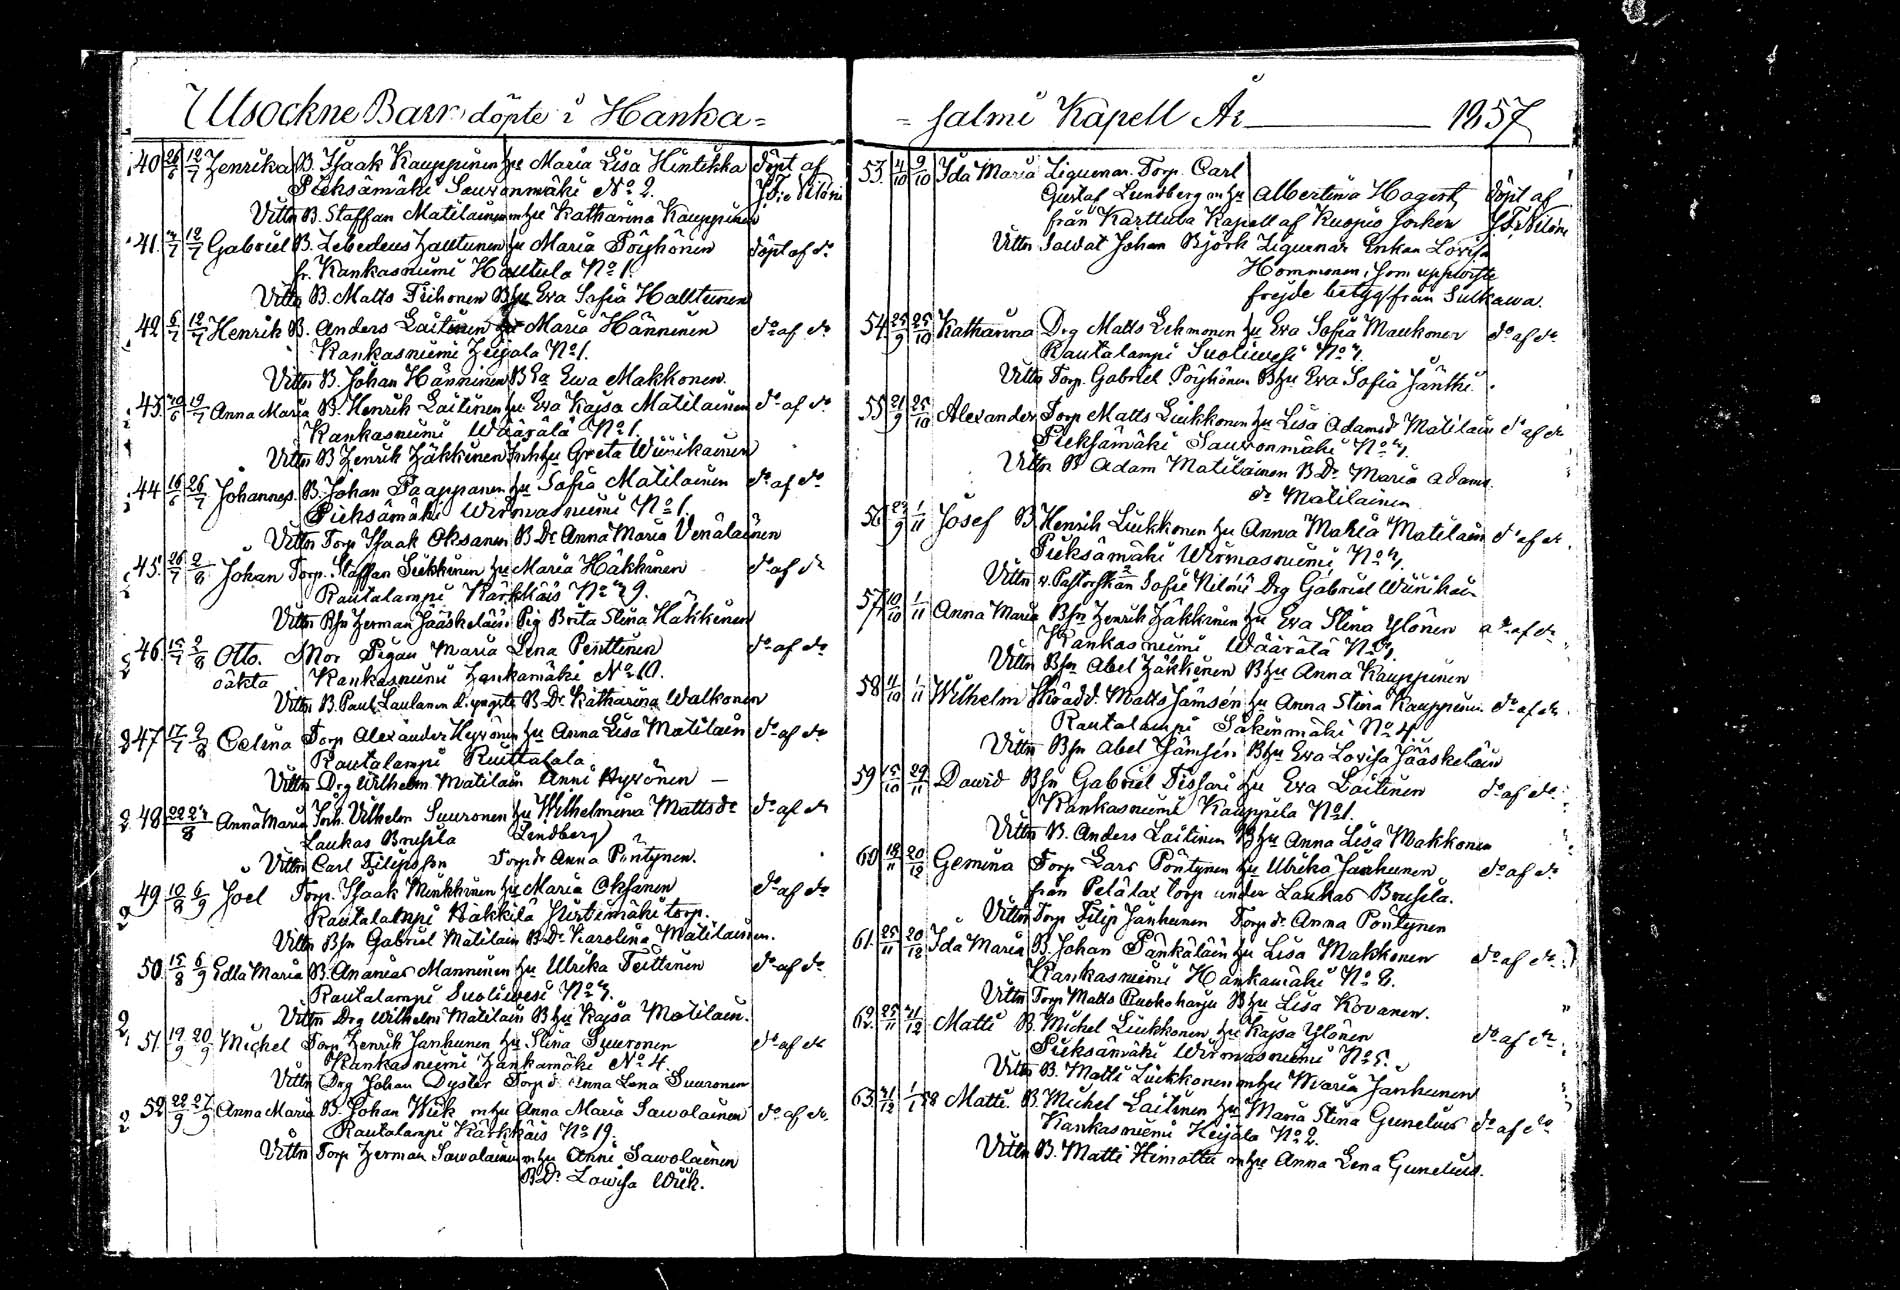 Utsockne Barn döpte i Hanka=
40. 26/6 12/7 Henrika B. Isaak Kauppinen hu Maria Lisa Hintikka döpt af
Pieksämäki Sauvonmäki No 2. J. F. Nilóni
Vittn B. Staffan Matilainen m hu Katharina Kauppinen
41. 12/7 Gabriel B. Zebedeus Hautunen hu Maria Pöyhönen döpt af do
fr. Kankasniemi Hautula No 1.
Vittn B. Matts Tiihonen B hu Eva Sofia Halttunen
42 6/7 12/7 Henrik B. Anders Laitinen hu Maria Hänninen do af do
Kankasniemi Heijala No 1.
Vittn B. Johan Hänninen B Ea Ewa Makkonen.
43. 19/7 Anna Maria B. Henrik Laitinen hu Eva Kajsa Matilainen do af do
Kankasniemi Wäärälä No 1.
Vittn B Henrik Häkkinen Inh hu Greta Wiinikainen
44 16/6 26/7 Johannes. B. Johan Paappanen hu Sofia Matilainen do af do
Pieksämäki Wirmasniemi No 1.
Vittn Torp Isaak Oksanen B Dr Anna Maria Venäläinen
45. 26/7 2/8 Johan Torp. Staffan Siekkinen hu Maria Häkkinen do af do
Rautalampi Kärkkäis No 29.
Vittn Bsn Herman Jääskeläin Pig Brita Stina Häkkinen
46. 15/7 2/8 Otto. Mor Pigan Maria Lena Penttinen do af do
oäkta Kankasniemi Hankamäki No 10.
Vittn B. Paul Laulanen B. Dr Katharina Walkonen
47 17/7 9/8 Celina Torp Alexander Hyvönen hu Anna Lisa Matilain do af do
Rautalampi
Vittn Drg Wilhelm Matilain Anni Hyvönen —
48. 22 23/8 Anna Maria Inh. Vilhelm Suuronen hu Wilhelmina Mattsdr do af do
Laukas Brusila Lindberg
Vittn Carl Filipsson Torpdr Anna Pöntynen.
49 10/8 6/9 Joel Torp. Isaak Minkkinen hu Maria Oksanen do af do
Rautalampi Häkkilä torp.
Vittn Bsn Gabriel Matilain B. Dr Karolina Matilainen.
50 15/8 6/9 Edla Maria B. Ananias Manninen hu Ulrika Teittinen do af do
Rautalampi Suoliwesi No 7.
Vittn Drg Wilhelm Matilain B hu Kajsa Matilain.
51. 19/9 20/9 Michel Torp Henrik Janhunen hu Stina Suuronen do af do
Kankasniemi Hankamäki No 4.
Vittn Drg Johan Dyster Torp dr Anna Lena Suuronen
52 22/9 27/9 Anna Maria B. Johan Wiik m hu Anna Maria Sawolainen do af do
Rautalampi Kärkkäis No 19.
Vittn Torp Herman Sawolainen m hu Anni Sawolainen
B. Dr Lowisa Wiik.
= salmi Kapell År 1857
53. 4/10 9/10 Ida Maria Ziguenar. Torp. Carl
Gustaf Lundberg m hu Albertina Hagert döpt af
från Karttula Kapell af Kuopio Socken J. F. Nilóni
Vittn Sawat Johan Björk Ziguenar Enkan Lovisa
Hommonen, som uppwiste
frejde betyg från Sulkawa.
54. 25/9 25/10 Katharina Drg Matts Lehmonen hu Eva Sofia Maukonen do af do
Rautalampi Suoliwesi No 7.
Vittn Torp. Gabriel Pöyhönen B hu Eva Sofia Jäntti.
55 21/9 25/10 Alexander Torp Matts Liukkonen hu Lisa Adamsdr Matilain do af do
Pieksämäki Sauvonmäki No 7.
Vittn B Adam Matilainen B Dr Maria Adams
dr Matilainen
56 1/11 Josef B. Henrik Liukkonen hu Anna Maria Matilain do af do
Pieksämäki Wirmasniemi No 7.
Vittn v. Pastorskan Sofie Nilóni Drg Gabriel Wiinikain
57. 10/10 1/11 Anna Maria Bsn Henrik Häkkinen hu Eva Stina Ylönen do af do
Kankasniemi Wäärälä No 7.
Vittn Bsn Abel Häkkinen B hu Anna Kauppinen
58 11/10 1/11 Wilhelm Skrädd. Matts Jämsén hu Anna Stina Kauppinen do af do
Rautalampi Säkinmäki No 4
Vittn Bsn Abel Jämsén B hu Eva Lovisa Jääskeläin
59 15/10 29/11 Dawid Bsn Gabriel Tissari hu Eva Laitinen do af do
Kankasniemi Kauppila No 1.
Vittn B. Anders Laitinen B hu Anna Lisa Makkonen
60 18/11 20/12 Gemina Torp Lars Pöntynen hu Ulrika Janhunen do af do
från Pelälax torp under Laukas Brusila.
Vittn Torp Filip Janhunen Torp dr Anna Pöntynen
61. 25/11 20/12 Ida Maria B. Johan Pänkäläin hu Lisa Makkonen do af do
Kankasniemi Hankamäki No 8.
Vittn Torp Matts Ruokoharju B hu Lisa Kovanen.
62. 25/11 21/12 Matti B. Michel Liukkonen hu Kajsa Ylönen do af do
Pieksämäki Wirmasniemi No 5.
Vittn B. Matti Liukkonen m hu Maria Janhunen
63. 31/12 1/1 58 Matti. B. Michel Laitinen hu Maria Stina Gunelius do af do
Kankasniemi Heijala No 2.
Vittn B. Matti Himottu m hu Anna Lena Gunelius.